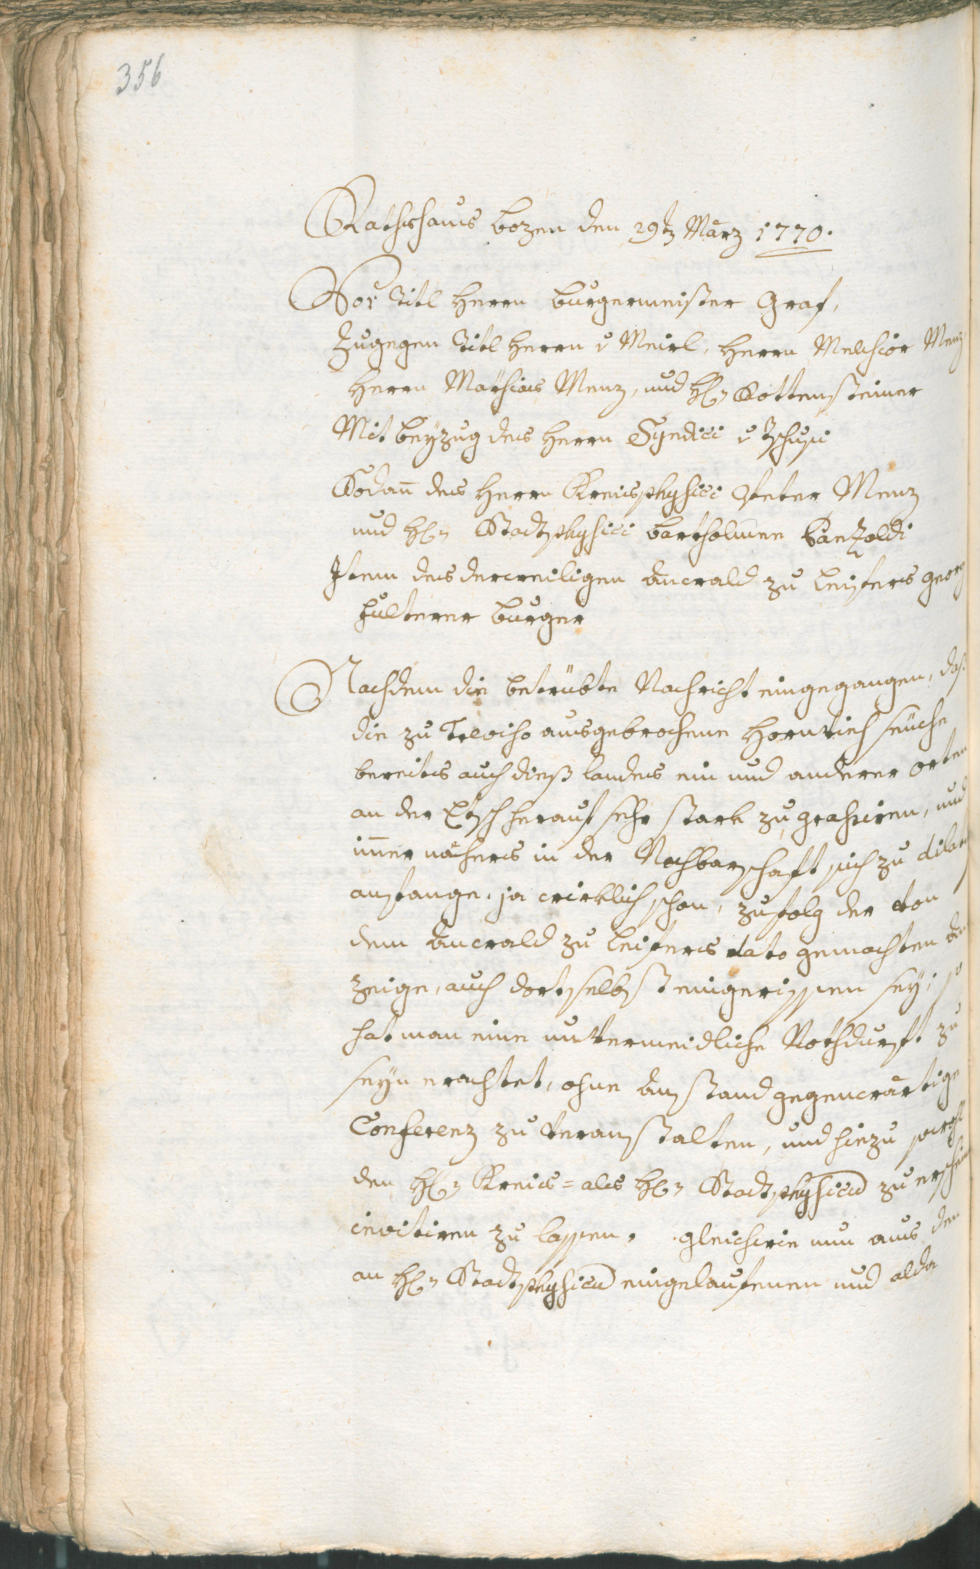 356
Rathshaus Bozen den 29t März 1770.
Vor Titl Herrn Burgermeister Graf,
Zugegen Titl Herrn v Meirl, Herrn Melchior Menz
Herrn Mathias Menz, und H. Kottensteiner
Mit Beyzug des Herrn Syndici v Tschusi
Sodañ des Herrn Kreisphysici Peter Menz
und H. Stadtphysici Bartholmee
Item des derweiligen Anwald zu Leifers Georg
Fulterer Burger
Nachdem die betrübte Nachricht eingegangen, daß
die zu ausgebrochene Hornviehseüche
bereits auch dieß Landes ein und anderer Orten
an der Etsch herauf sehr stark zu grahsiren, und
im̄er nähers in der Nachbarschaft sich zu
anfange, ja wirklich schon, zufolg der von
dem Anwald zu Leifers dato gemachten An
zeige, auch dortselbst eingerissen sey; so
hat man eine unvermeidliche Nothdurft zu
seyn erachtet, ohne Anstand gegenwärtige
Conferenz zu veranstalten, und hiezu sowohl
den H. Kreis= als H. Stadtphysicum zu
invitiren zu lassen. gleichwie nun aus den
an H. Stadtphysicum eingelaufenen und alda